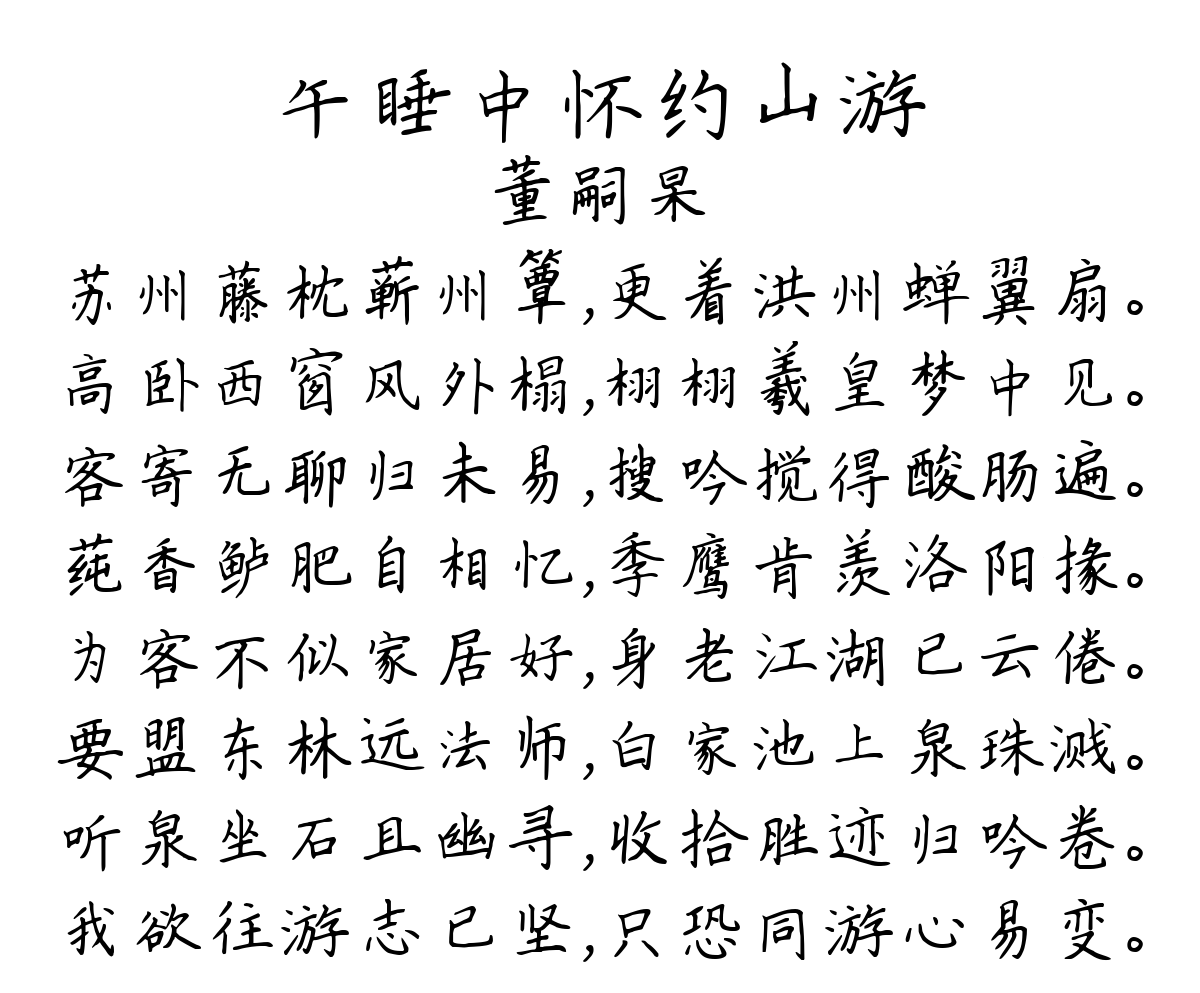 午睡中怀约山游
董嗣杲
苏州藤枕蕲州簟,更着洪州蝉翼扇。
高卧西窗风外榻,栩栩羲皇梦中见。
客寄无聊归未易,搜吟搅得酸肠遍。
莼香鲈肥自相忆,季鹰肯羡洛阳掾。
为客不似家居好,身老江湖已云倦。
要盟东林远法师,白家池上泉珠溅。
听泉坐石且幽寻,收拾胜迹归吟卷。
我欲往游志已坚,只恐同游心易变。